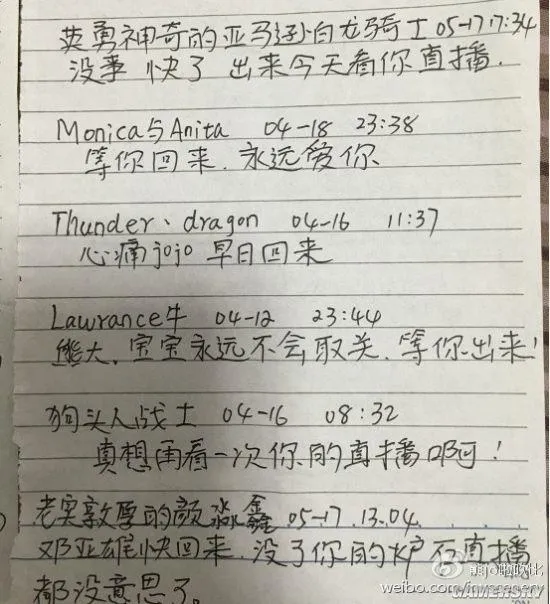 英勇神奇的亚马逊白龙骑士 05-17 17:34
没事 快了 出来今天看你直播.
Monica与Anita 04-18 23:38
等你回来.永远爱你
Thunder、dragon 04-16 11:37
心痛jojo 早日回来
Lawrance牛 04-12 23:44
熊大,宝宝永远不会取关,等你出来!
狗头人战士 04-16 08:32
真想再看一次你的直播啊!
老实敦厚的颜淼鑫 05-17.13.04.
邓亚雄快回来.没了你的炉石直播
都没意思了.
weibo.com/
GAMERSKY